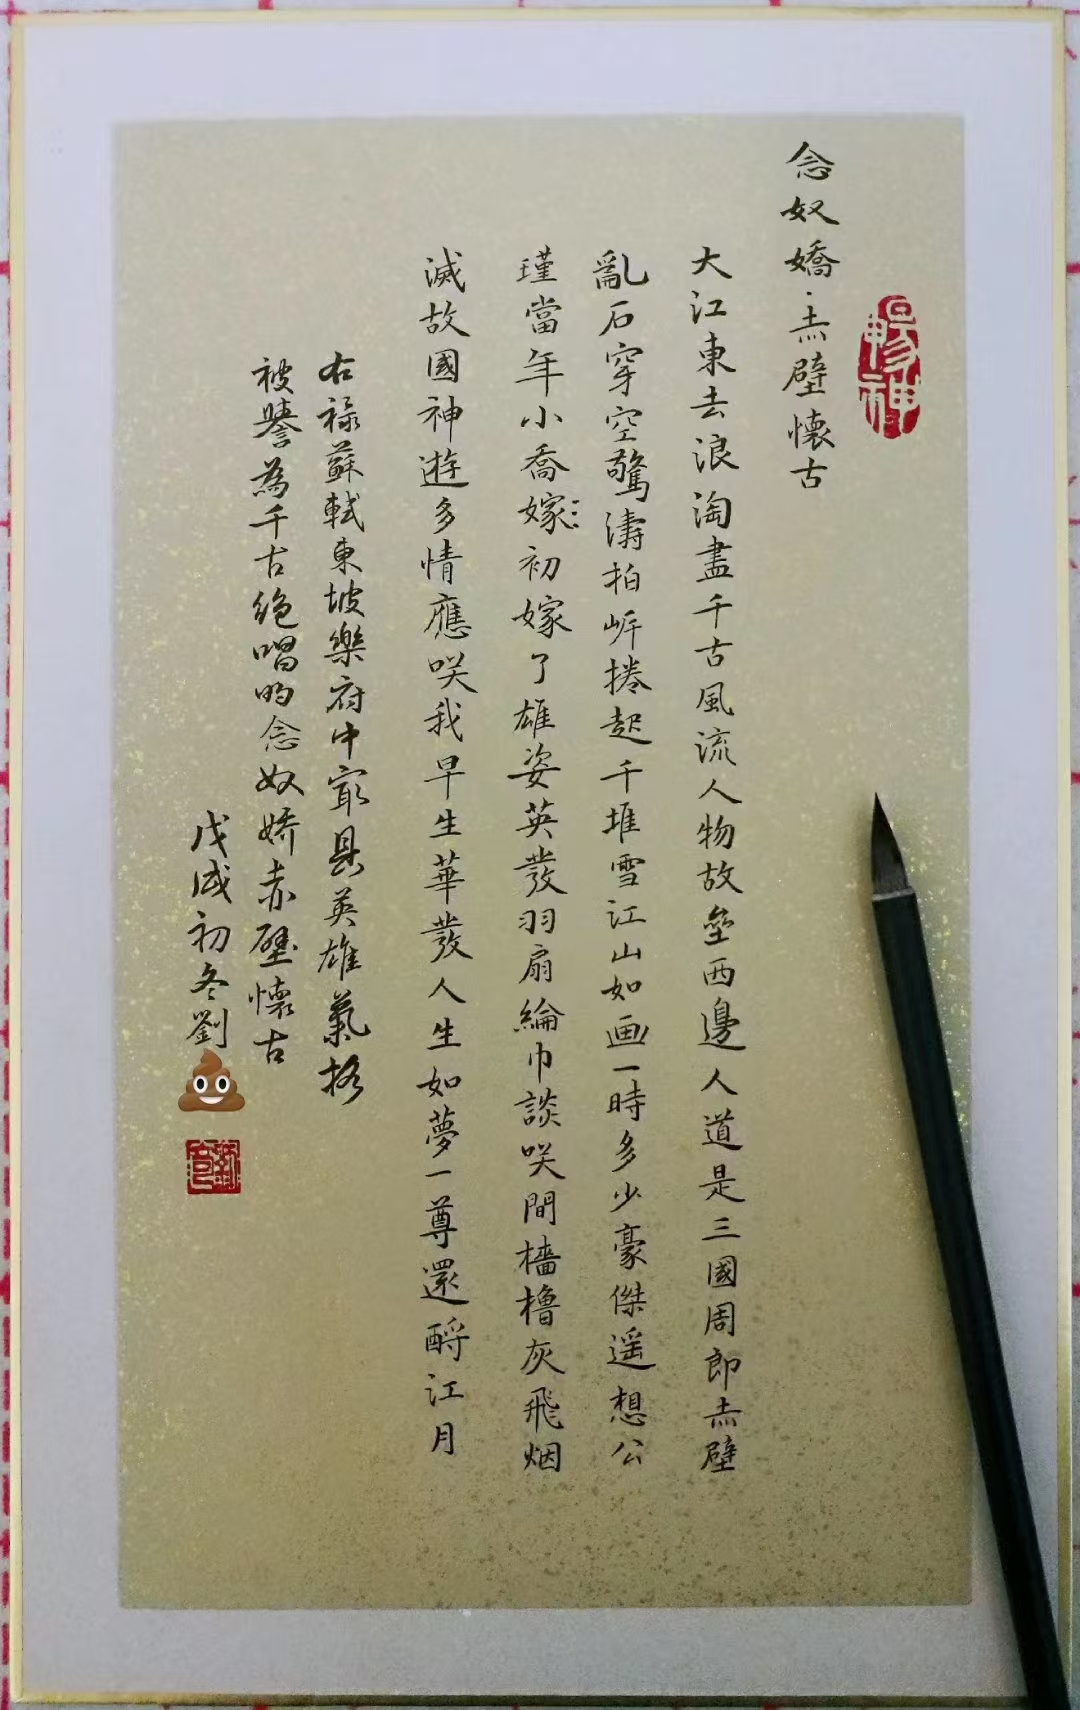 暢神
念奴嬌·赤壁懷古
大江東去浪淘盡千古風流人物故壘西邊人道是三國周郎赤壁
亂石穿空驚濤拍岸捲起千堆雪江山如画一時多少豪傑遥想公
瑾當年小喬嫁初嫁了雄姿英發羽扇綸巾談咲間檣櫓灰飛烟
滅故國神遊多情應咲我早生華發人生如夢一尊還酹江月
右禄蘇軾東坡樂府中寂具英雄氣格
被譽為千古绝唱的念奴娇赤壁懷古
戊戌初冬劉